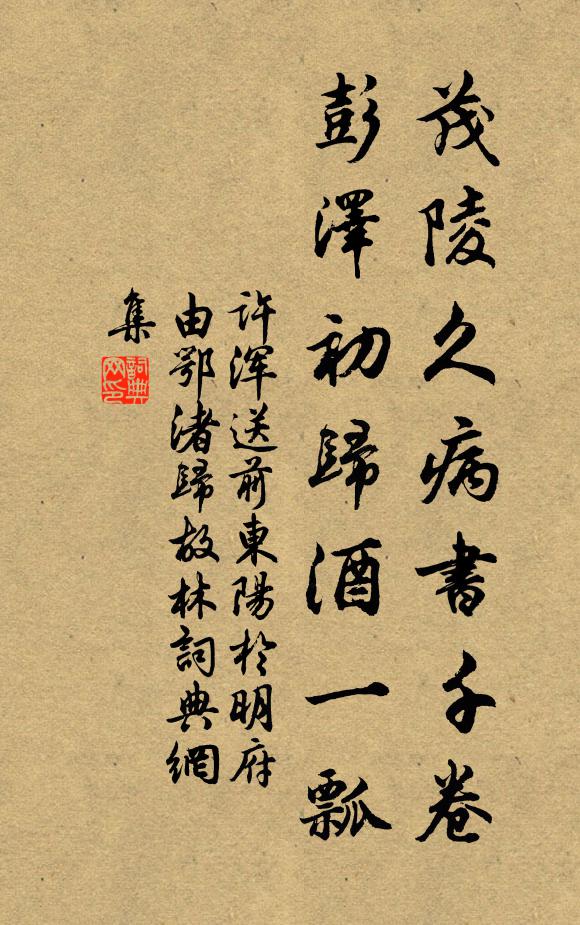 茂陵久病書千卷
彭澤初歸酒一瓢
许浑送前東陽於明府
由鄂渚歸故林詞典網
集
詞典
网印